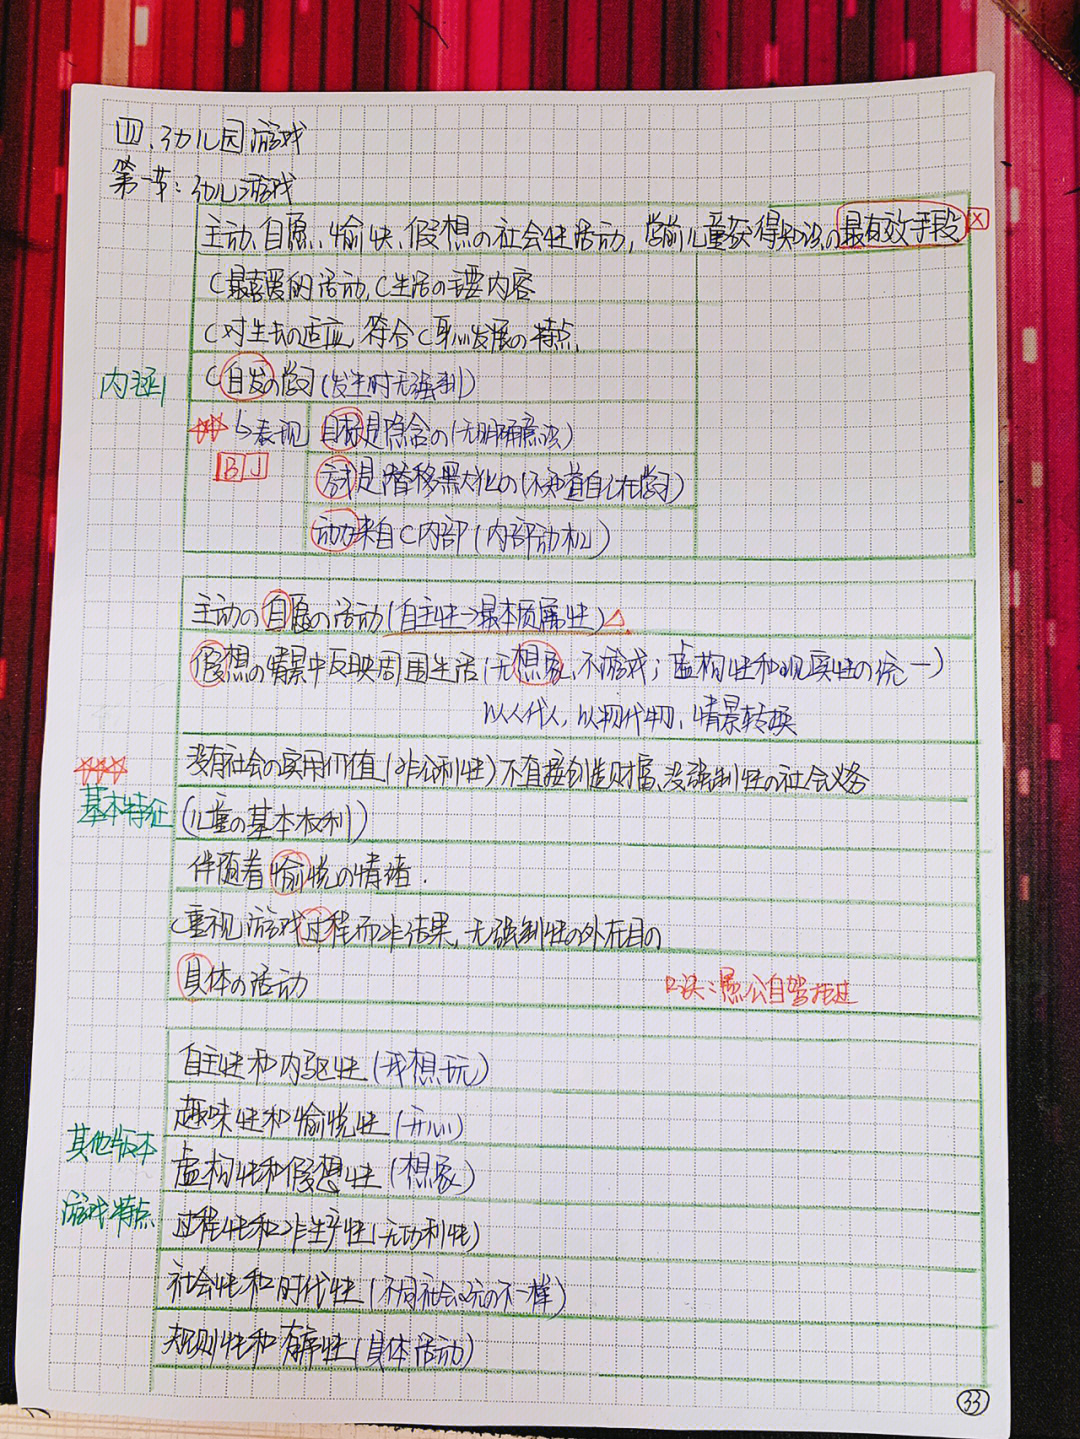 四、幼儿园游戏
第一节：幼儿游戏
主动、自愿、愉快、假想の社会性活动，学前儿童获得知识の最有效手段 X
C最喜爱的活动，C生活の主要内容
C对生长の适应，符合C身心发展の特点，
内涵
C自发の学习（发生时无强制）
↳表现 目标是隐含の（无明确意识）
BJ
方式是潜移默大化の（不知道自己在学习）
动力来自C内部（内部动机）
主动の自愿の活动（自主性→最本质属性）△
假想の情景中反映周围生活（无想象，不游戏；虚构性和现实性の统一）
以人代人，以物代物，情景转换
没有社会の实用价值（非公利性）不直接创造财富、没强制性の社会义务
基本特征
（儿童の基本权利）
伴随着愉悦の情绪.
C重视游戏过程而非结果，无强制性の外在目の
具体の活动
口诀：愚公自驾 过
自主性和内驱性（我想玩）
趣味性和愉悦性（开心）
其他版本
虚构性和假想性（想象）
游戏特点
过程性和非生产性（无功利性）
社会性和时代性（不同社会 玩の不一样）
规则性和有序性（具体活动）
33